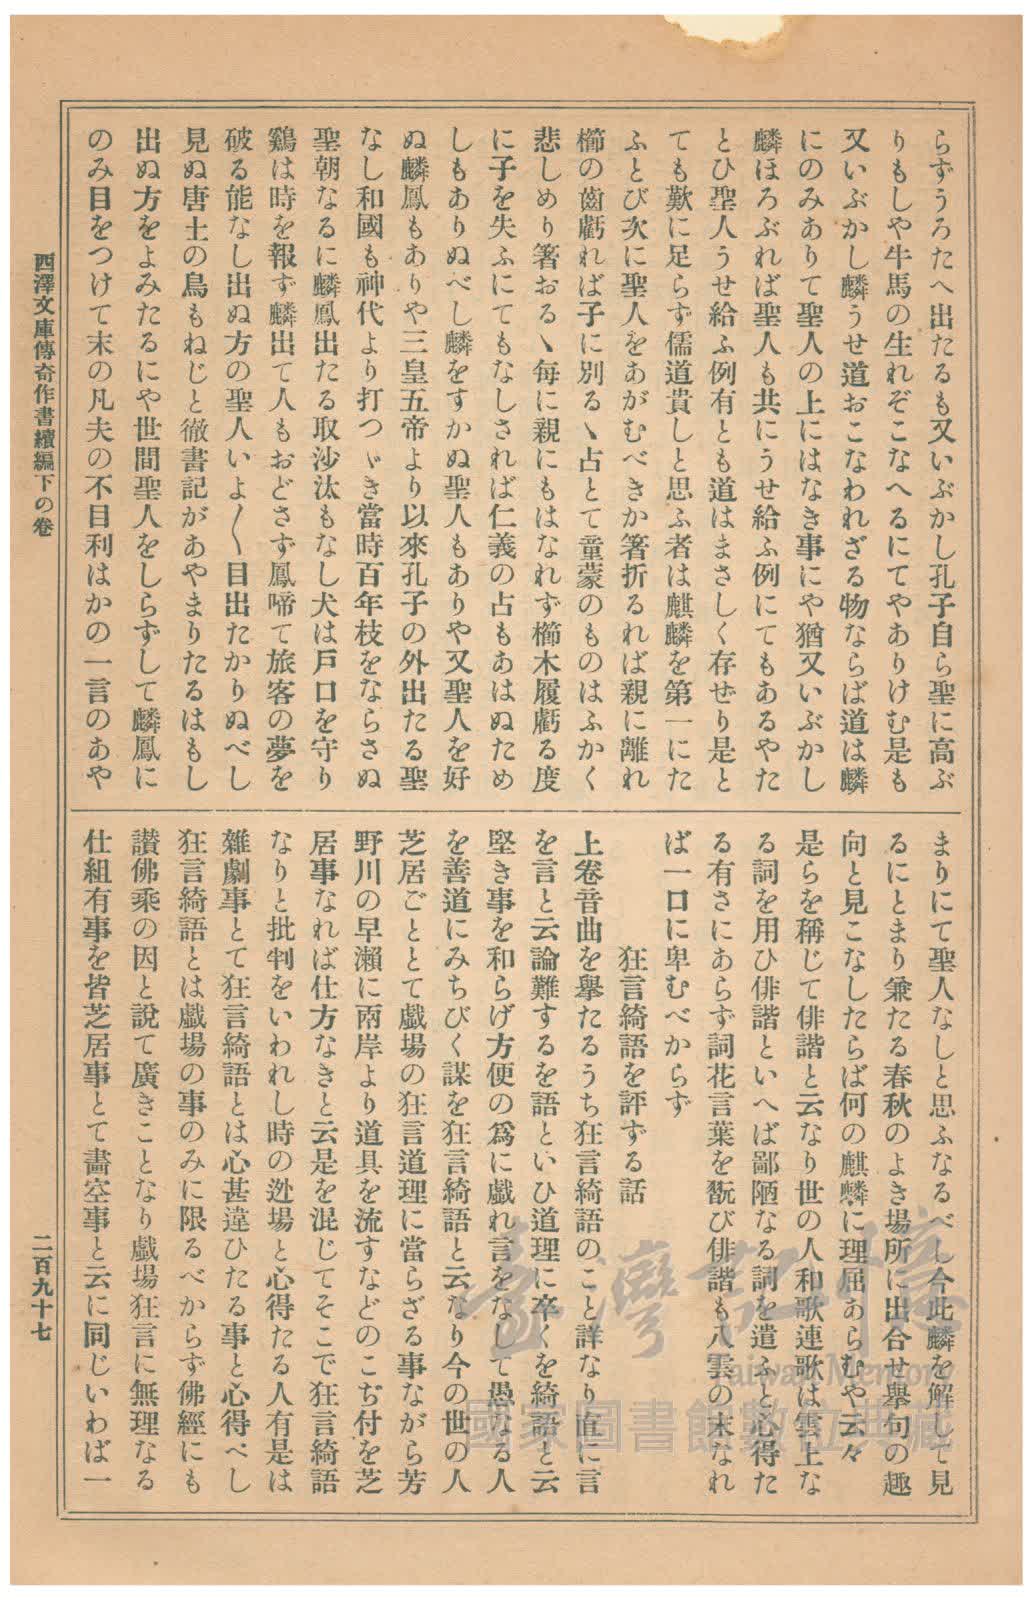 らずうろたへ出たるも又いぶかし孔子自ら聖に高ぶ
りもしや牛馬の生れぞこなへるにてやありけむ是も
又いぶかし麟うせ道おこなわれざる物ならば道は麟
にのみありて聖人の上にはなき事にや猶又いぶかし
麟ほろぶれば聖人も共にうせ給ふ例にてもあるやた
とひ聖人うせ給ふ例有とも道はまさしく存せり是と
ても歎に足らず儒道貴しと思ふ者は麒麟を第一にた
ふとび次に聖人をあがむべきか箸折るれば親に離れ
櫛の齒虧れば子に別るヽ占とて童蒙のものはふかく
悲しめり箸おるヽ毎に親にもはなれず櫛木履虧る度
に子を失ふにてもなしされば仁義の占もあはぬため
しもありぬべし麟をすかぬ聖人もありや又聖人を好
ぬ麟鳳もありや三皇五帝より以來孔子の外出たる聖
なし和國も神代より打つゞき當時百年枝をならさぬ
聖朝なるに麟鳳出たる取沙汰もなし犬は戸口を守り
鷄は時を報ず麟出て人もおどさず鳳啼て旅客の夢を
破る能なし出ぬ方の聖人いよ〳〵目出たかりぬべし
見ぬ唐土の鳥もねじと徹書記があやまりたるはもし
出ぬ方をよみたるにや世間聖人をしらずして麟鳳に
のみ目をつけて末の凡夫の不目利はかの一言のあや
まりにて聖人なしと思ふなるべし今此麟を解して見
るにとまり兼たる春秋のよき場所に出合せ擧句の趣
向と見こなしたらば何の麒麟に理屈あらむや云々
是らを稱じて俳諧と云なり世の人和歌連歌は雲上な
る詞を用ひ俳諧といへば鄙陋なる詞を遣ふと心得た
る有さにあらず詞花言葉を翫び俳諧も八雲の末なれ
ば一口に卑むべからず
狂言綺語を評ずる話
上卷音曲を擧たるうち狂言綺語のこと詳なり直に言
を言と云論難するを語といひ道理に卒くを綺語と云
堅き事を和らげ方便の爲に戯れ言をなして愚なる人
を善道にみちびく謀を狂言綺語と云なり今の世の人
芝居ごととて戯場の狂言道理に當らざる事ながら芳
野川の早瀬に兩岸より道具を流すなどのこぢ付を芝
居事なれば仕方なきと云是を混じてそこで狂言綺語
なりと批判をいわれし時の迯場と心得たる人有是は
雜劇事とて狂言綺語とは心甚違ひたる事と心得べし
狂言綺語とは戯場の事のみに限るべからず佛經にも
讃佛乘の因と說て廣きことなり戯場狂言に無理なる
仕組有事を皆芝居事とて畵空事と云に同じいわば一
西澤文庫傳奇作書續編下の卷
二百九十七
臺灣記憶
Taiwan Memory
國家圖書館數位典藏